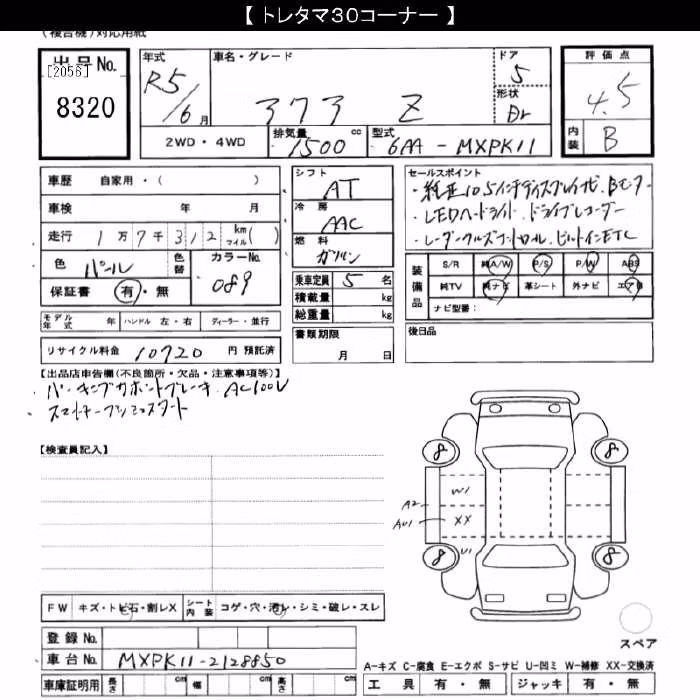 【 トレタマ30コーナー 】
(複合機)対応用紙
出品No.
[2056]
8320
年式
R5/6月
車名・グレード
ドア
5
形状
評価点
4.5
内装 B
2WD・4WD
排気量 1500 cc
型式 6AA-MXPK11
車歴 自家用・( )
車検 年 月
走行 1万7千312 km マイル( )
色 パール
色替
カラーNo. 089
保証書 有・無
モデル年式 年 ハンドル 左・右 ディーラー・並行
リサイクル料金 10720 円 預託済
シフト AT
冷房 AAC
燃料 ガソリン
乗車定員 5 名
積載量 kg
総重量 kg
書類期限
月 日
セールスポイント
・純正10.5インチディスプレイナビ.Bモニター
・LEDヘッドライト.ドライブレコーダー
・レーダークルーズコントロール.ビルトインETC
装備品
S/R 純A/W P/S P/W ABS
純TV 純ナビ 革シート 外ナビ エアB
ナビ型番:
後日品
【出品店申告欄(不良箇所・欠品・注意事項等)】
・パーキングサポートブレーキ.AC100V
・スマートキープッシュスタート
【検査員記入】
8 8
A2 W1
AU1 XX
U1
8 8
FW キズ・トビ石・割レX シート内装 コゲ・穴・汚レ・シミ・破レ・スレ
登録No.
車台No. MXPK11-2128850
車庫証明用 長さ cm 幅 cm 高さ cm
スペア
A-キズ C-腐食 E-エクボ S-サビ U-凹ミ W-補修 XX-交換済
工具 有・無 ジャッキ 有・無